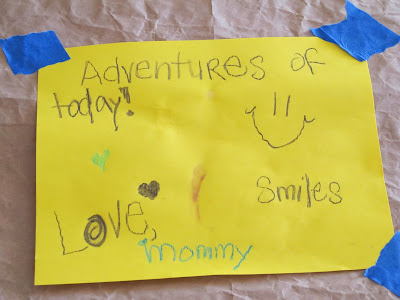 Adventures of
today!
Smiles
Love,
mommy